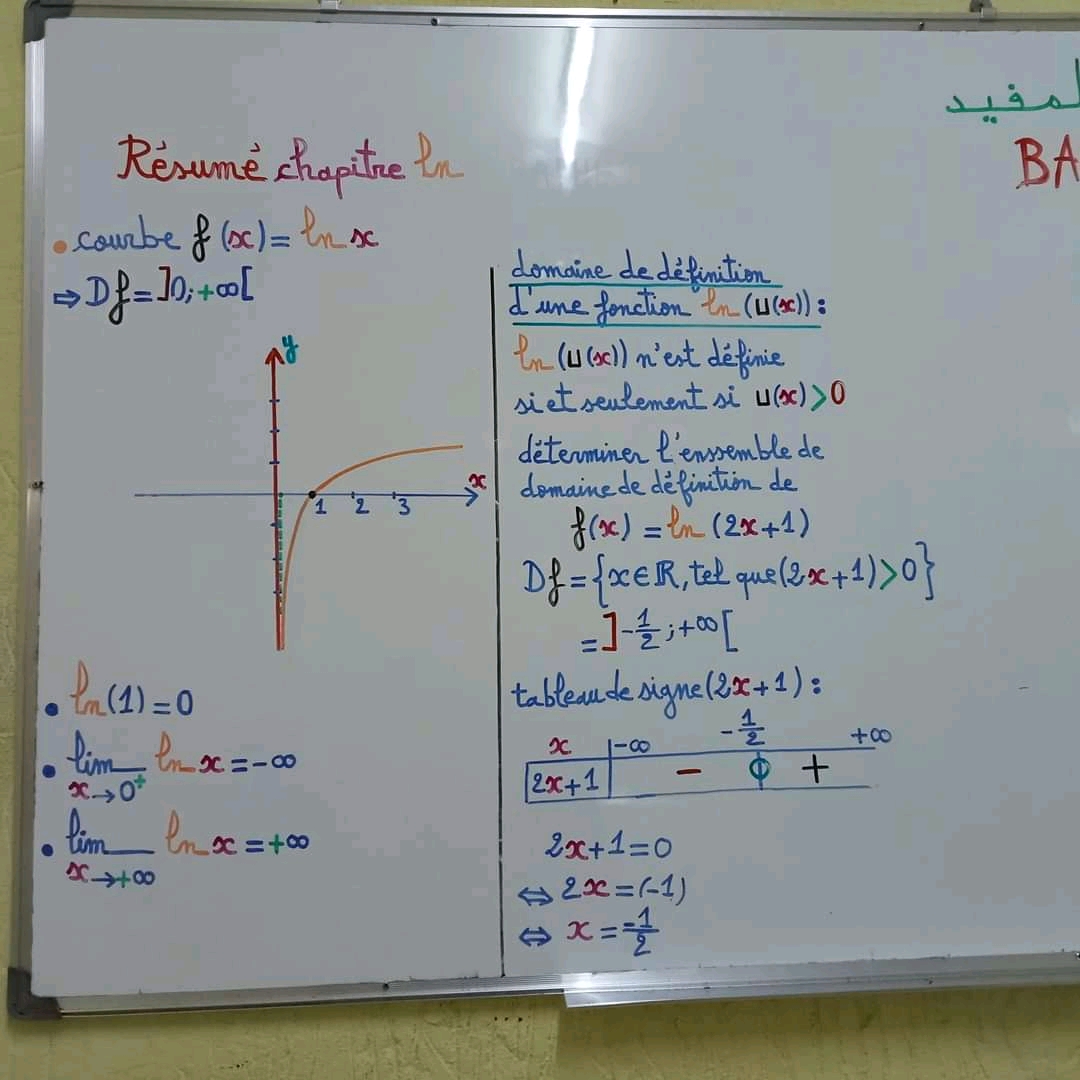 لمفيد
BA
Résumé chapitre ln
• courbe f(x) = ln x
⇒ Df = ]0; +∞[
y
x
1 2 3
• ln(1) = 0
• lim ln x = -∞
x→0⁺
• lim ln x = +∞
x→+∞
domaine de définition
d'une fonction ln (u(x)) :
ln (u(x)) n'est définie
si et seulement si u(x) > 0
déterminer l'enssemble de
domaine de définition de
f(x) = ln (2x+1)
Df = {x ∈ ℝ, tel que (2x+1) > 0}
= ]-1/2 ; +∞[
tableau de signe (2x+1) :
x -∞ -1/2 +∞
2x+1 - 0 +
2x+1 = 0
⇔ 2x = (-1)
⇔ x = -1/2